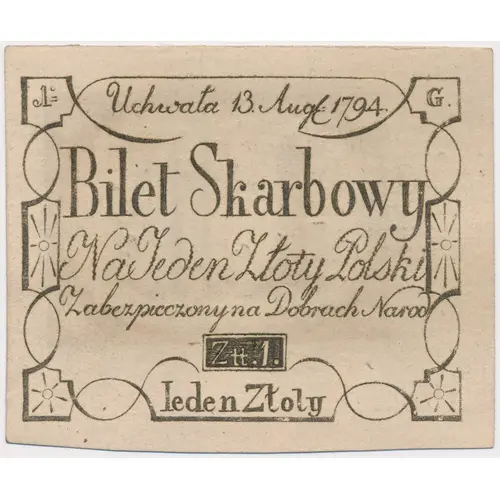 1º G.
Uchwała 13. Augt 1794.
Bilet Skarbowy
Na Jeden Złoty Polski
Zabezpieczony na Dobrach Narod
Zł: 1.
Ieden Złoty